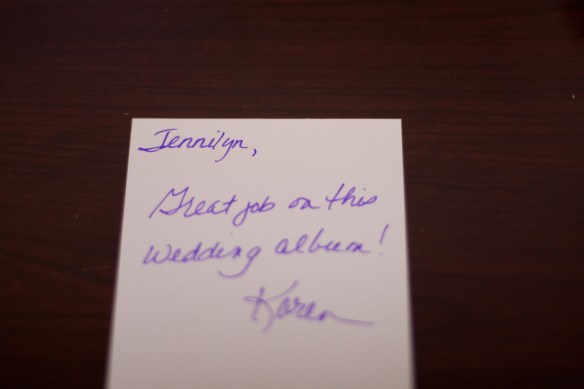 Jennilyn,
Great job on this
wedding album!
Karen